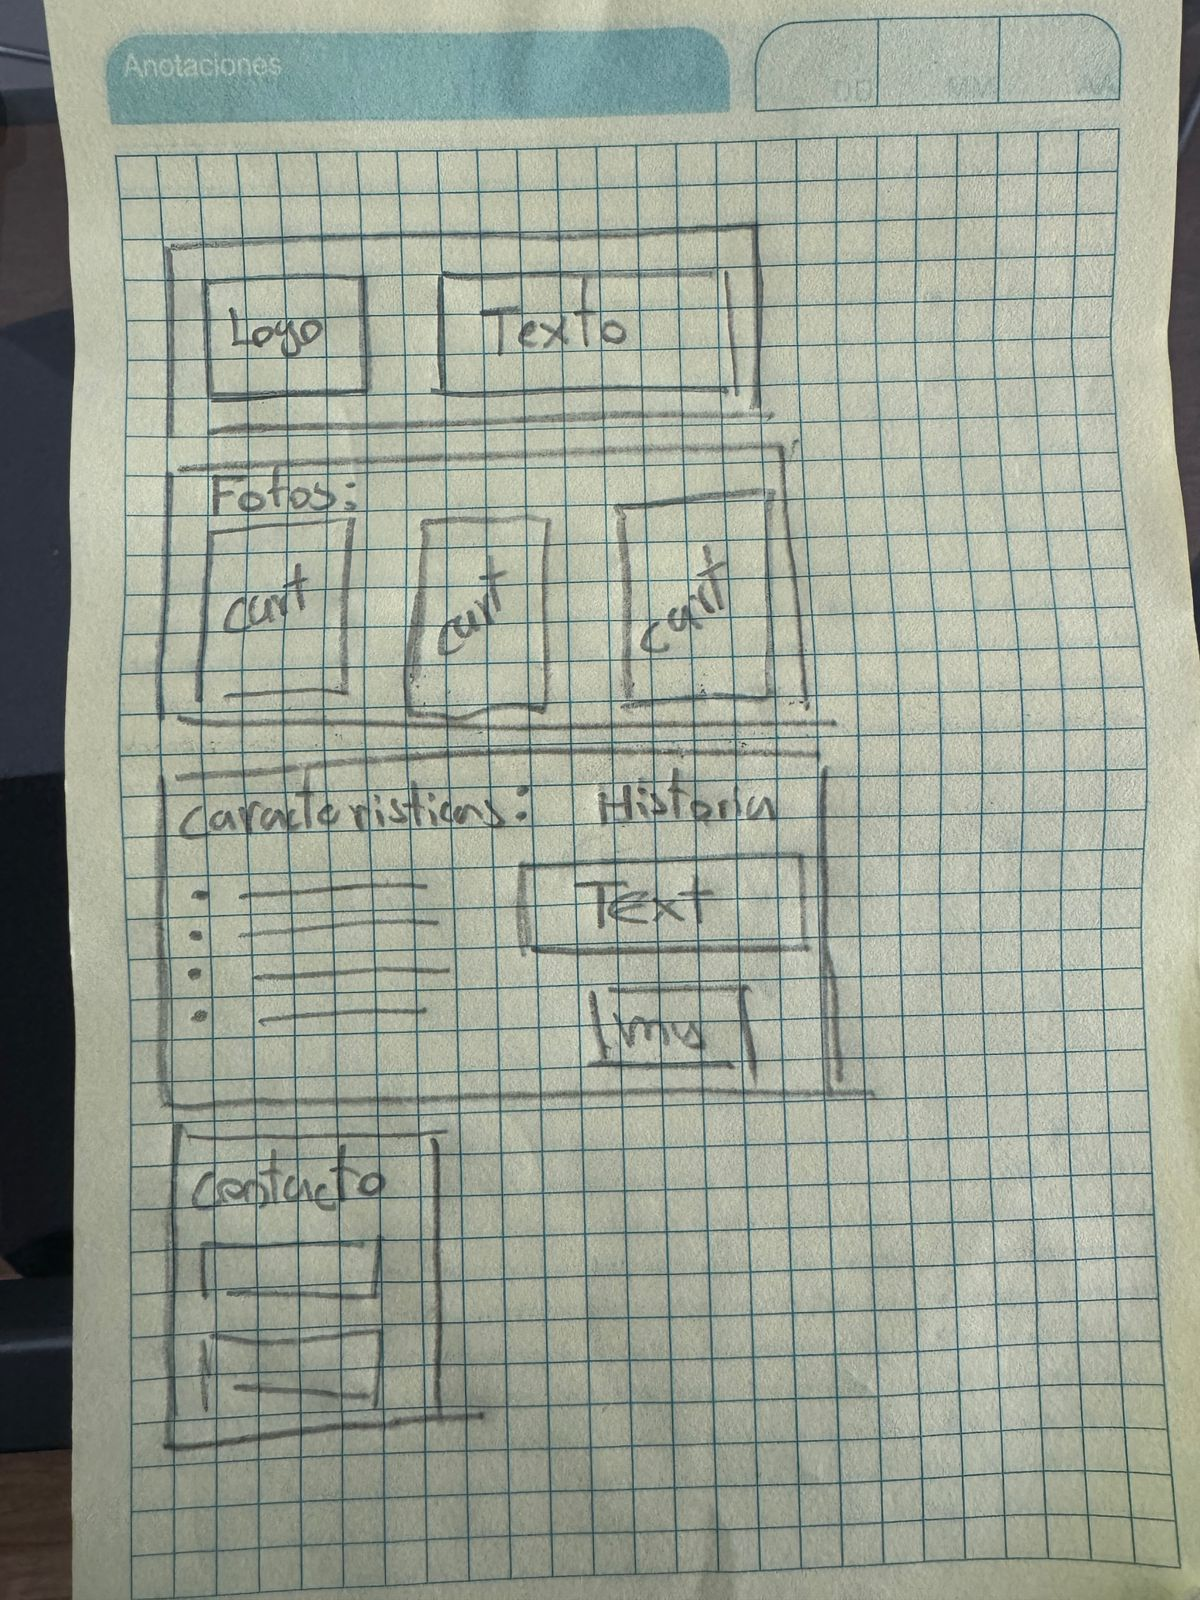 Anotaciones
DD MM AA
Logo Texto
Fotos:
cart cart cart
caracteristicas: Historia
Text
Img
contacto